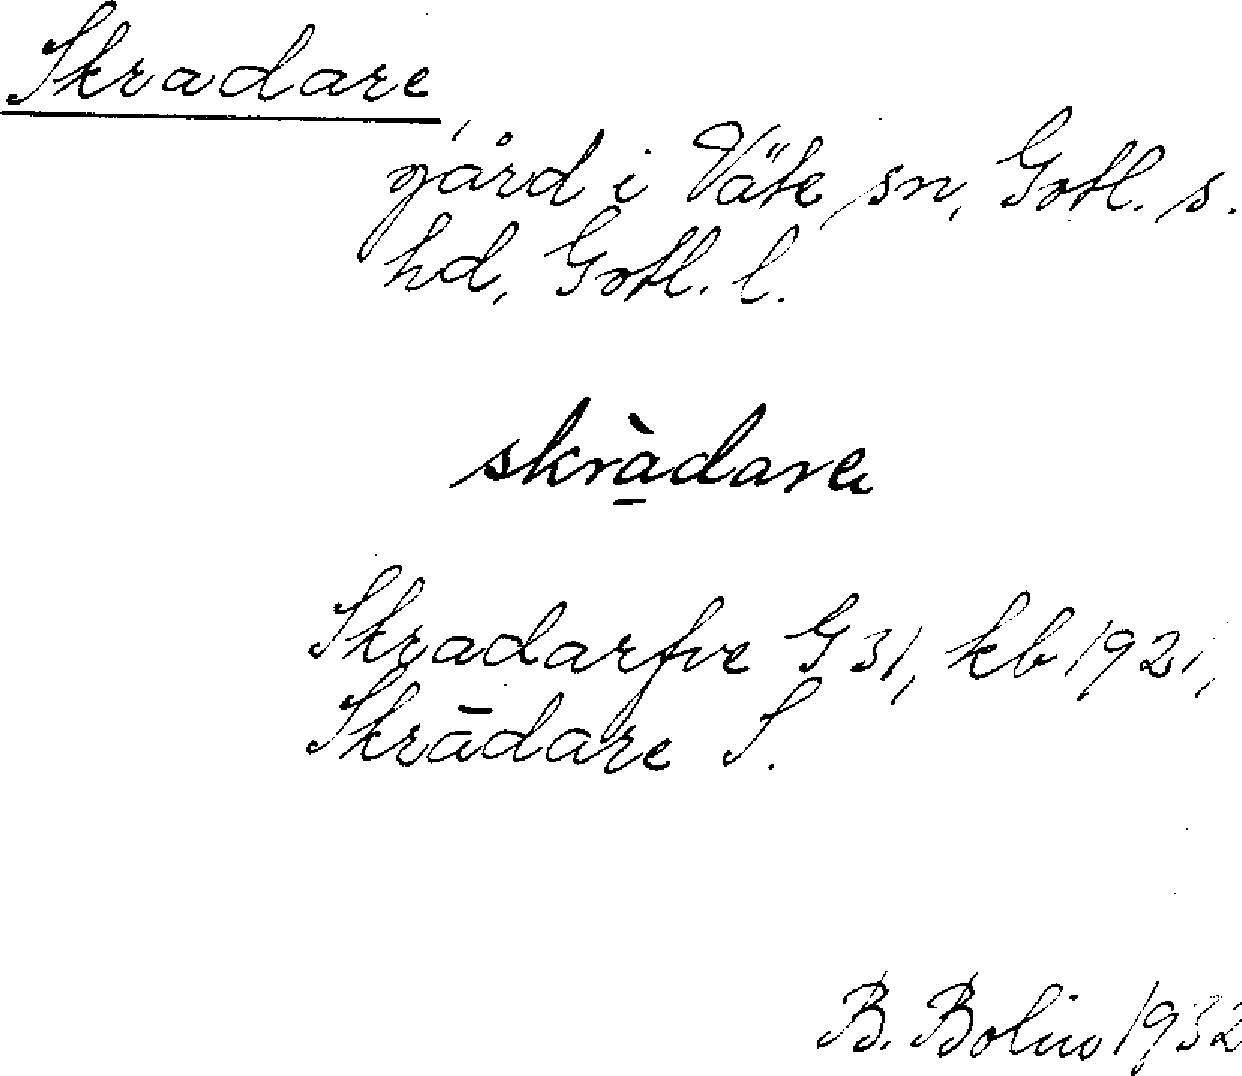 Skradare
gård i Väte sn, Gotl. s.
hd, Gotl. l.
skrà̱dare
Skradarfve G 31, kb 1921,
Skrādare S.
B. Bolin 1932